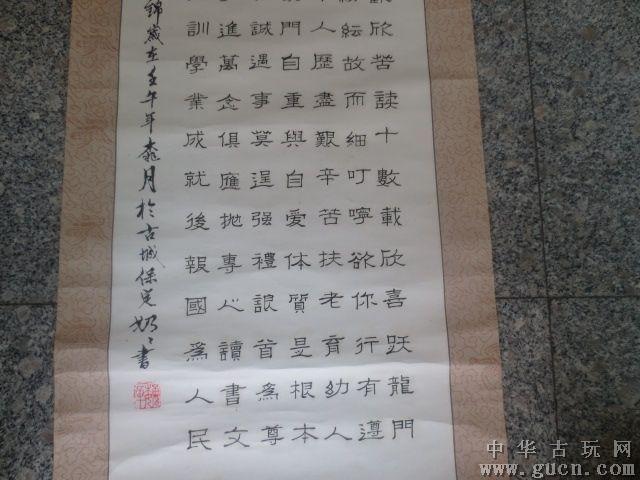 欣苦读十數載欣喜跃龍門
紜故而細叮嚀欲你行有遵
人歷盡艱辛苦扶老育幼人
門自重與自爱体質是根本
誠遇事莫逞强禮誢首為尊
進萬念俱應抛專心讀書文
訓學業成就後報國為人民
錦歲在壬午年桼月於古城保定奶々書
中华古玩网
www.gucn.com